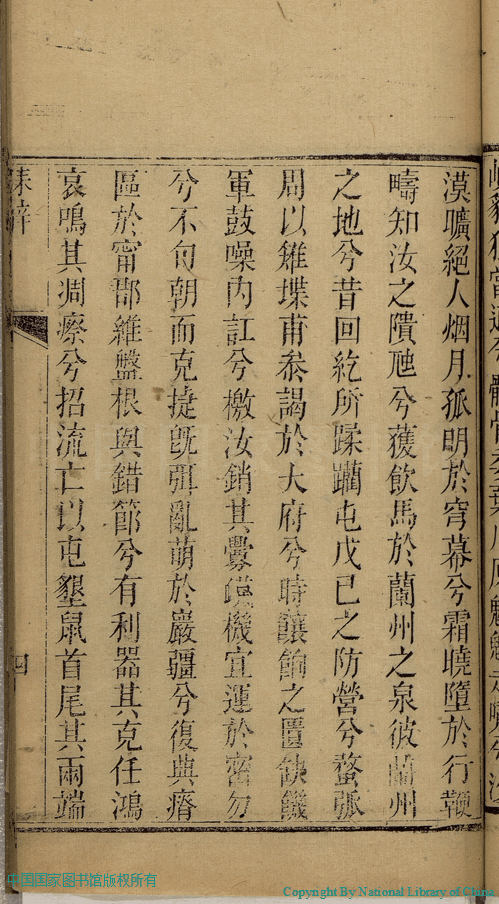 漠曠絕人烟月孤明於穹幕兮霜曉墮於行鞭
疇知汝之隤虺兮獲飲馬於蘭州之泉彼蘭州
之地兮昔回紇所蹂躪屯戊己之防營兮蝥弧
周以雉堞甫叅謁於大府兮時饟餉之匱缺饑
軍鼓噪內訌兮檄汝銷其釁機宜運於密勿
兮不旬朝而克㨗旣弭亂萌於巖疆兮復典瘠
區於甯郡維盤根與錯節兮有利器其克任鴻
哀鳴其凋瘵兮招流亡以屯墾鼠首尾其兩端
誄辭
四
中国国家图书馆版权所有
Copyright By National Library of China